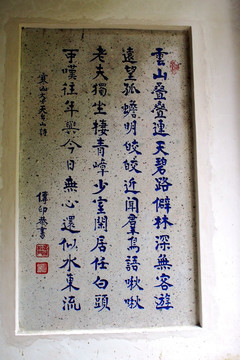 雲山叠叠連天碧路僻林深無客遊
遠望孤蟾明皎皎近聞羣鳥語啾啾
老夫獨坐棲青嶂少室閒居任白頭
可嘆往年與今日無心還似水東流
寒山大士山詩
傳印恭書